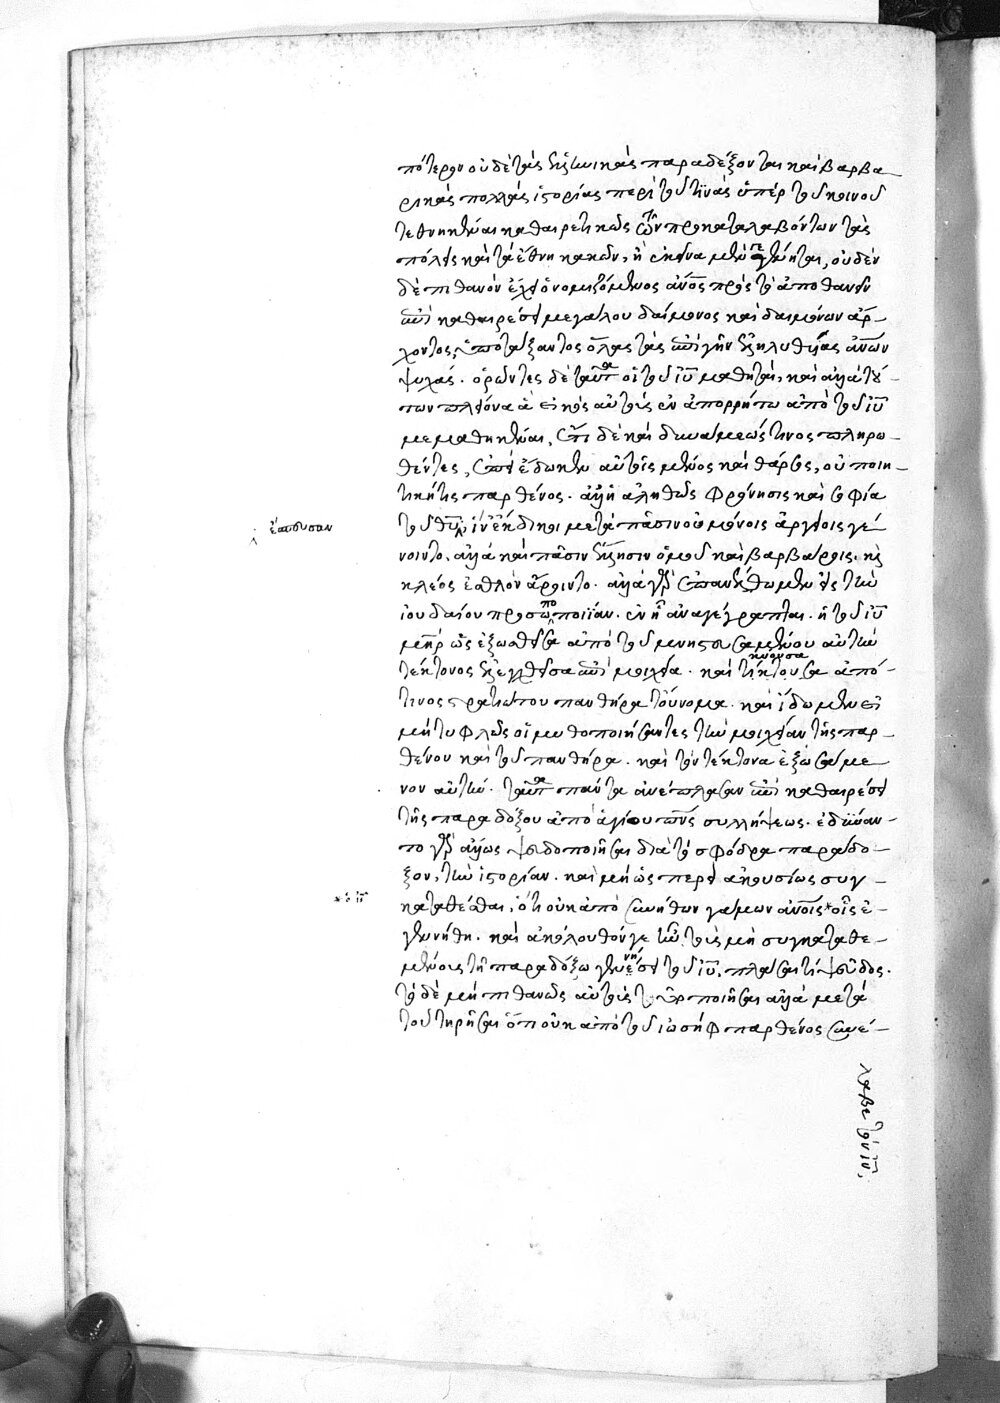 πότερον οὐδὲ τὰς ἑλληνικὰς παραδέξονται καὶ βαρβα-
ρικὰς πολλὰς ἱστορίας περὶ τοῦ τινὰς ὑπὲρ τοῦ κοινοῦ
τεθνηκέναι καθαιρετικῶς τῶν προκαταλαβόντων τὰς
πόλεις καὶ τὰ ἔθνη κακῶν, ἢ ἐκεῖνα μὲν γεγένηται, οὐδὲν
δὲ πιθανὸν ἔχει ὁ νομιζόμενος ἄνος πρὸς τὸ ἀποθανεῖν
ἐπὶ καθαιρέσει μεγάλου δαίμονος καὶ δαιμόνων ἄρ-
χοντος, ὑποτάξαντος ὅλας τὰς ἐπὶ γῆν ἐληλυθυίας ἀνων
ψυχάς. ὁρῶντες δὲ ταῦτα οἱ τοῦ ἰῦ μαθηταὶ, καὶ ἄλλα τού-
των πλείονα ἃ εἰκὸς αὐτοὺς ἐν ἀπορρήτω ἀπὸ τοῦ ἰῦ
μεμαθηκέναι, ἔτι δὲ καὶ δυνάμεώς τινος πληρω-
θέντες, ἐπεὶ ἔδωκεν αὐτοῖς μένος καὶ θάρσος, οὐ ποιη-
τικὴ τὶς παρθένος. ἀλλ' ἡ ἀληθῶς φρόνησις καὶ σοφία
τοῦ θῦ, ἵν' ἔκδηλοι μετὰ πᾶσιν οὐ μόνοις ἀργείοις γέ-
νοιντο. ἀλλὰ καὶ πᾶσιν ἕλλησιν ὁμοῦ καὶ βαρβάροις. καὶ
κλέος ἐσθλὸν ἄροιντο. ἀλλὰ γὰρ ἐπανέλθωμεν εἰς τὴν
ἰουδαίου προσωποποιΐαν. ἐν ᾗ ἀναγέγραπται. ἡ τοῦ ἰῦ
μηρ ὡς ἐξωσθεῖσα ἀπὸ τοῦ μνηστευσαμένου αὐτὴν
κύουσα
τέκτονος ἐλεγχθεῖσα ἐπὶ μοιχεία. καὶ τίκτουσα ἀπό
τινος στρατιώτου πανθήρα τοὔνομα. καὶ ἴδωμεν εἰ
μὴ τυφλῶς οἱ μυθοποιήσαντες τὴν μοιχείαν τῆς παρ-
θένου καὶ τοῦ πανθήρα. καὶ τὸν τέκτονα ἐξωσάμε-
νον αὐτήν. ταῦτα πάντα ἀνέπλασαν ἐπὶ καθαιρέσει
τῆς παραδόξου ἀπὸ ἁγίου πνς συλλήψεως. ἐδύναν-
το γὰρ ἄλλως ψευδοποιῆσαι διὰ τὸ σφόδρα παράδο-
ξον, τὴν ἱστορίαν. καὶ μὴ ὡσπερεὶ ἀκουσίως συγ-
καταθέσθαι, ὅτι οὐκ ἀπὸ συνήθων γάμων ἀνοις* οἷς ἐ-
γεννήθη. καὶ ἀκόλουθόν γε ἦν τοὺς μὴ συγκαταθε-
μένους τῆ παραδόξω γενέσει τοῦ ἰῦ, πλάσαι τὶ ψεῦδος.
τὸ δὲ μὴ πιθανῶς αὐτοὺς τοῦτο ποιῆσαι ἀλλὰ μετὰ
τοῦ τηρῆσαι ὅτι οὐκ ἀπὸ τοῦ ἰωσὴφ παρθένος συνέ-
λαβε τὸν ἰν,
ἔσπευσαν
* ὁ ἰς